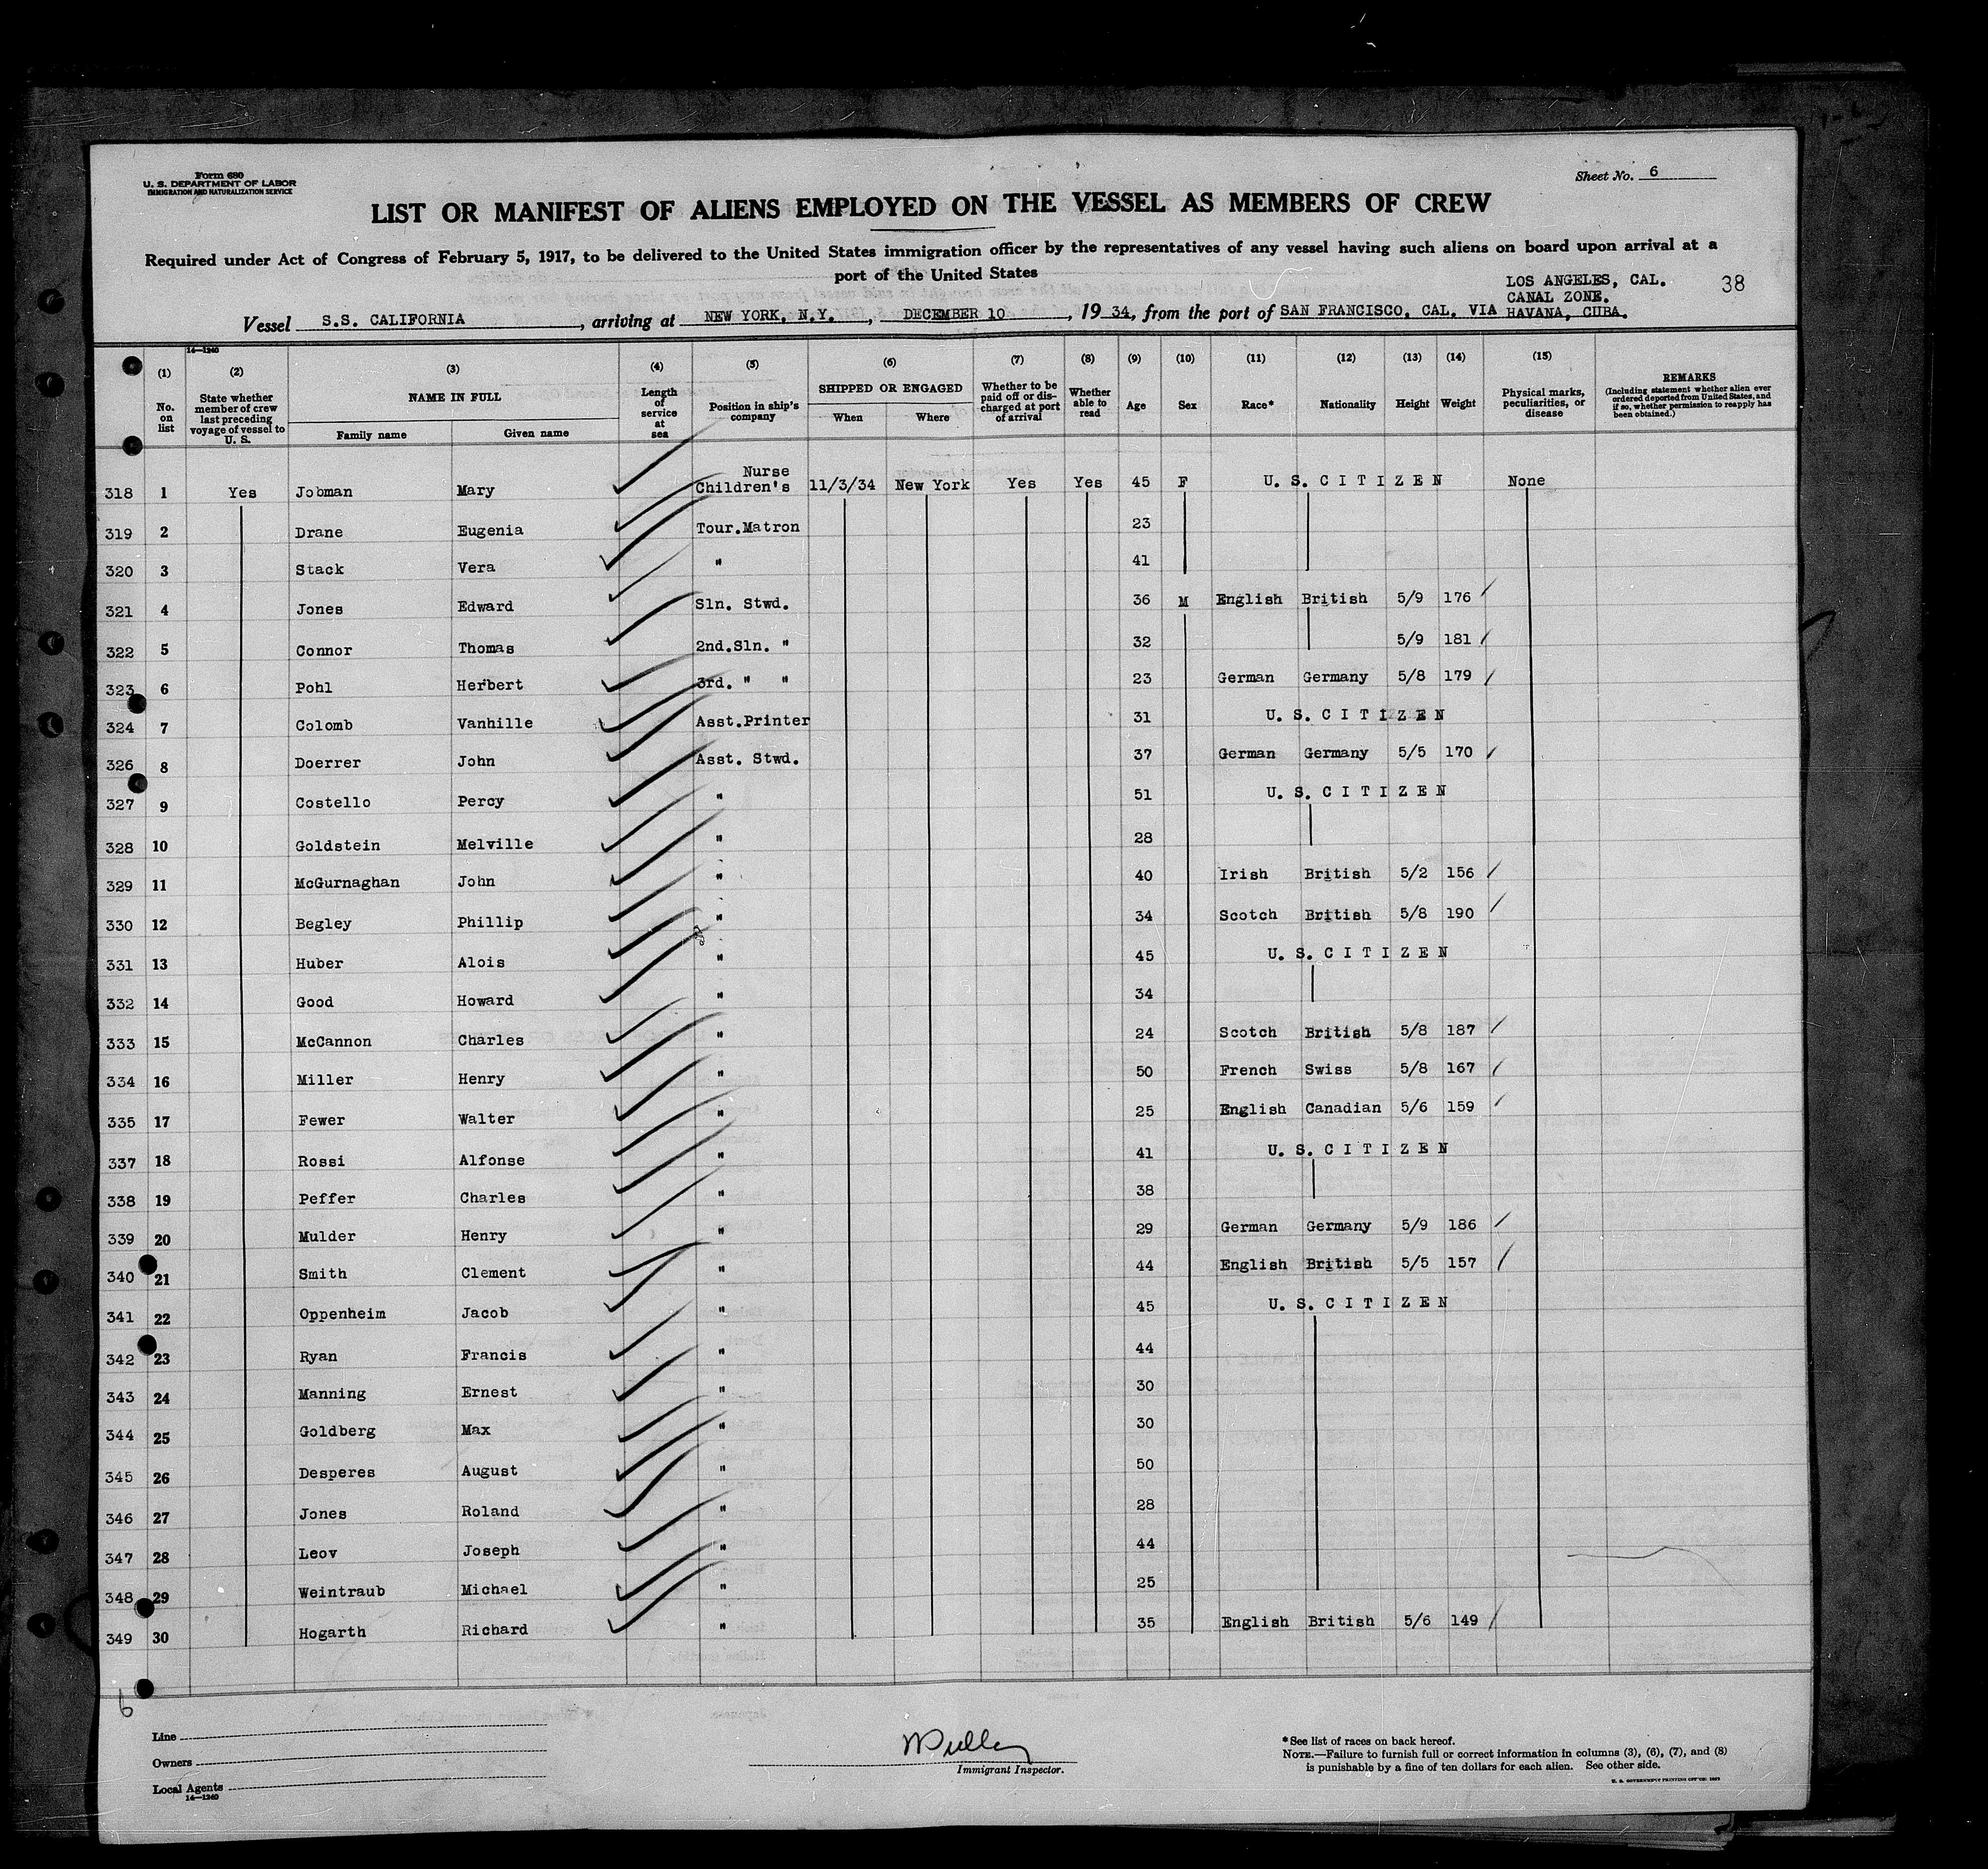 Form 680
U. S. DEPARTMENT OF LABOR
IMMIGRATION AND NATURALIZATION SERVICE
Sheet No. 6
LIST OR MANIFEST OF ALIENS EMPLOYED ON THE VESSEL AS MEMBERS OF CREW
Required under Act of Congress of February 5, 1917, to be delivered to the United States immigration officer by the representatives of any vessel having such aliens on board upon arrival at a
port of the United States
LOS ANGELES, CAL.
CANAL ZONE.
38
Vessel S.S. CALIFORNIA, arriving at NEW YORK, N.Y., DECEMBER 10, 1934, from the port of SAN FRANCISCO, CAL. VIA HAVANA, CUBA.
14—1240
(1) (2) (3) (4) (5) (6) (7) (8) (9) (10) (11) (12) (13) (14) (15)
No. on list
State whether member of crew last preceding voyage of vessel to U. S.
NAME IN FULL
Family name Given name
Length of service at sea
Position in ship's company
SHIPPED OR ENGAGED
When Where
Whether to be paid off or discharged at port of arrival
Whether able to read
Age Sex Race* Nationality Height Weight
Physical marks, peculiarities, or disease
REMARKS
(Including statement whether alien ever ordered deported from United States, and if so, whether permission to reapply has been obtained.)
318 1 Yes Jobman Mary Nurse Children's 11/3/34 New York Yes Yes 45 F U. S. C I T I Z E N None
319 2 Drane Eugenia Tour.Matron 23
320 3 Stack Vera " 41
321 4 Jones Edward Sln. Stwd. 36 M English British 5/9 176
322 5 Connor Thomas 2nd.Sln. " 32 5/9 181
323 6 Pohl Herbert 3rd. " " 23 German Germany 5/8 179
324 7 Colomb Vanhille Asst.Printer 31 U. S. C I T I Z E N
326 8 Doerrer John Asst. Stwd. 37 German Germany 5/5 170
327 9 Costello Percy " 51 U. S. C I T I Z E N
328 10 Goldstein Melville " 28
329 11 McGurnaghan John " 40 Irish British 5/2 156
330 12 Begley Phillip " 34 Scotch British 5/8 190
331 13 Huber Alois " 45 U. S. C I T I Z E N
332 14 Good Howard " 34
333 15 McCannon Charles " 24 Scotch British 5/8 187
334 16 Miller Henry " 50 French Swiss 5/8 167
335 17 Fewer Walter " 25 English Canadian 5/6 159
337 18 Rossi Alfonse " 41 U. S. C I T I Z E N
338 19 Peffer Charles " 38
339 20 Mulder Henry " 29 German Germany 5/9 186
340 21 Smith Clement " 44 English British 5/5 157
341 22 Oppenheim Jacob " 45 U. S. C I T I Z E N
342 23 Ryan Francis " 44
343 24 Manning Ernest " 30
344 25 Goldberg Max " 30
345 26 Desperes August " 50
346 27 Jones Roland " 28
347 28 Leov Joseph " 44
348 29 Weintraub Michael " 25
349 30 Hogarth Richard " 35 English British 5/6 149
6
Line
Owners
Local Agents
14—1240
Immigrant Inspector.
*See list of races on back hereof.
NOTE.—Failure to furnish full or correct information in columns (3), (6), (7), and (8)
is punishable by a fine of ten dollars for each alien. See other side.